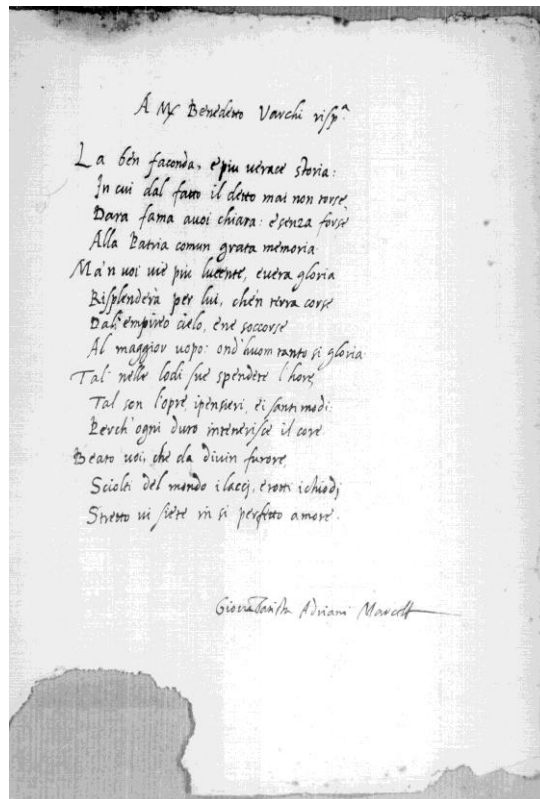 A Mx Benedetto Varchi rispᵃ.
La ben faconda, e piu uerace storia:
In cui dal fatto il detto mai non torse,
Dara fama auoi chiara: e senza forse
Alla Patria comun grata memoria
Ma'n uoi uie piu lucente, e uera gloria
Risplenderà per lui, ch'en terra corse
Dall'empireo cielo, e ne soccorse
Al maggior uopo: ond'huom tanto si gloria
Tal' nelle lodi sue spendete l'hore,
Tal son l'opre, i pensieri, e i santi modi:
Perch'ogni duro intenerisce il core
Beato uoi, che da diuin furore,
Sciolti del mondo i lacci, e rotti i chiodi
Stretto ui siete in si perfetto amore.
Giouābatista Adriani Marcell